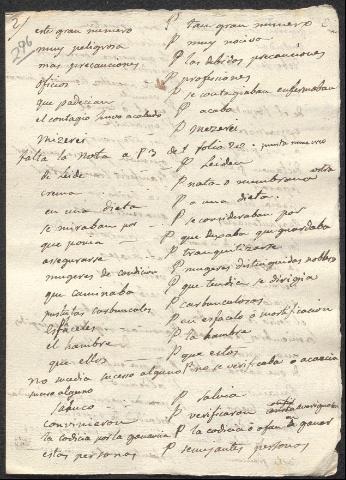 2)
296
este gran numero P tan gran numero
muy peligrosa P muy nociva
mas precauciones P las debidas precauciones
oficios P profesiones
que padecian P se contagiaban enfermaban
el contagio huvo acabado P acaba
mizerei P mezerei
falta la Nota a P 3 de f folio 20
di Leide P Leiden
crema P nata o membrana
en una dieta P a una dieta
se miraban por P se consideraban por
que ponia P que dexaba que guardaba
asegurarse P tranquilizarse
mugeres de condicion P mugeres distinguidas nobles
que caminaba P que tendia se dirigia
pustulas carbuncolos P carbunculosas
esfaceles P en esfacelo o mortificacion
el hambre P la hambre
que ellos P que estos
no sucedia suceso alguno P no se verificaba o acaecia
suceso alguno
Sabuco P Salvia
convinieron P verificaron
la codicia por la ganancia P la codicia o afan de ganar
estas personas P semejantes personas